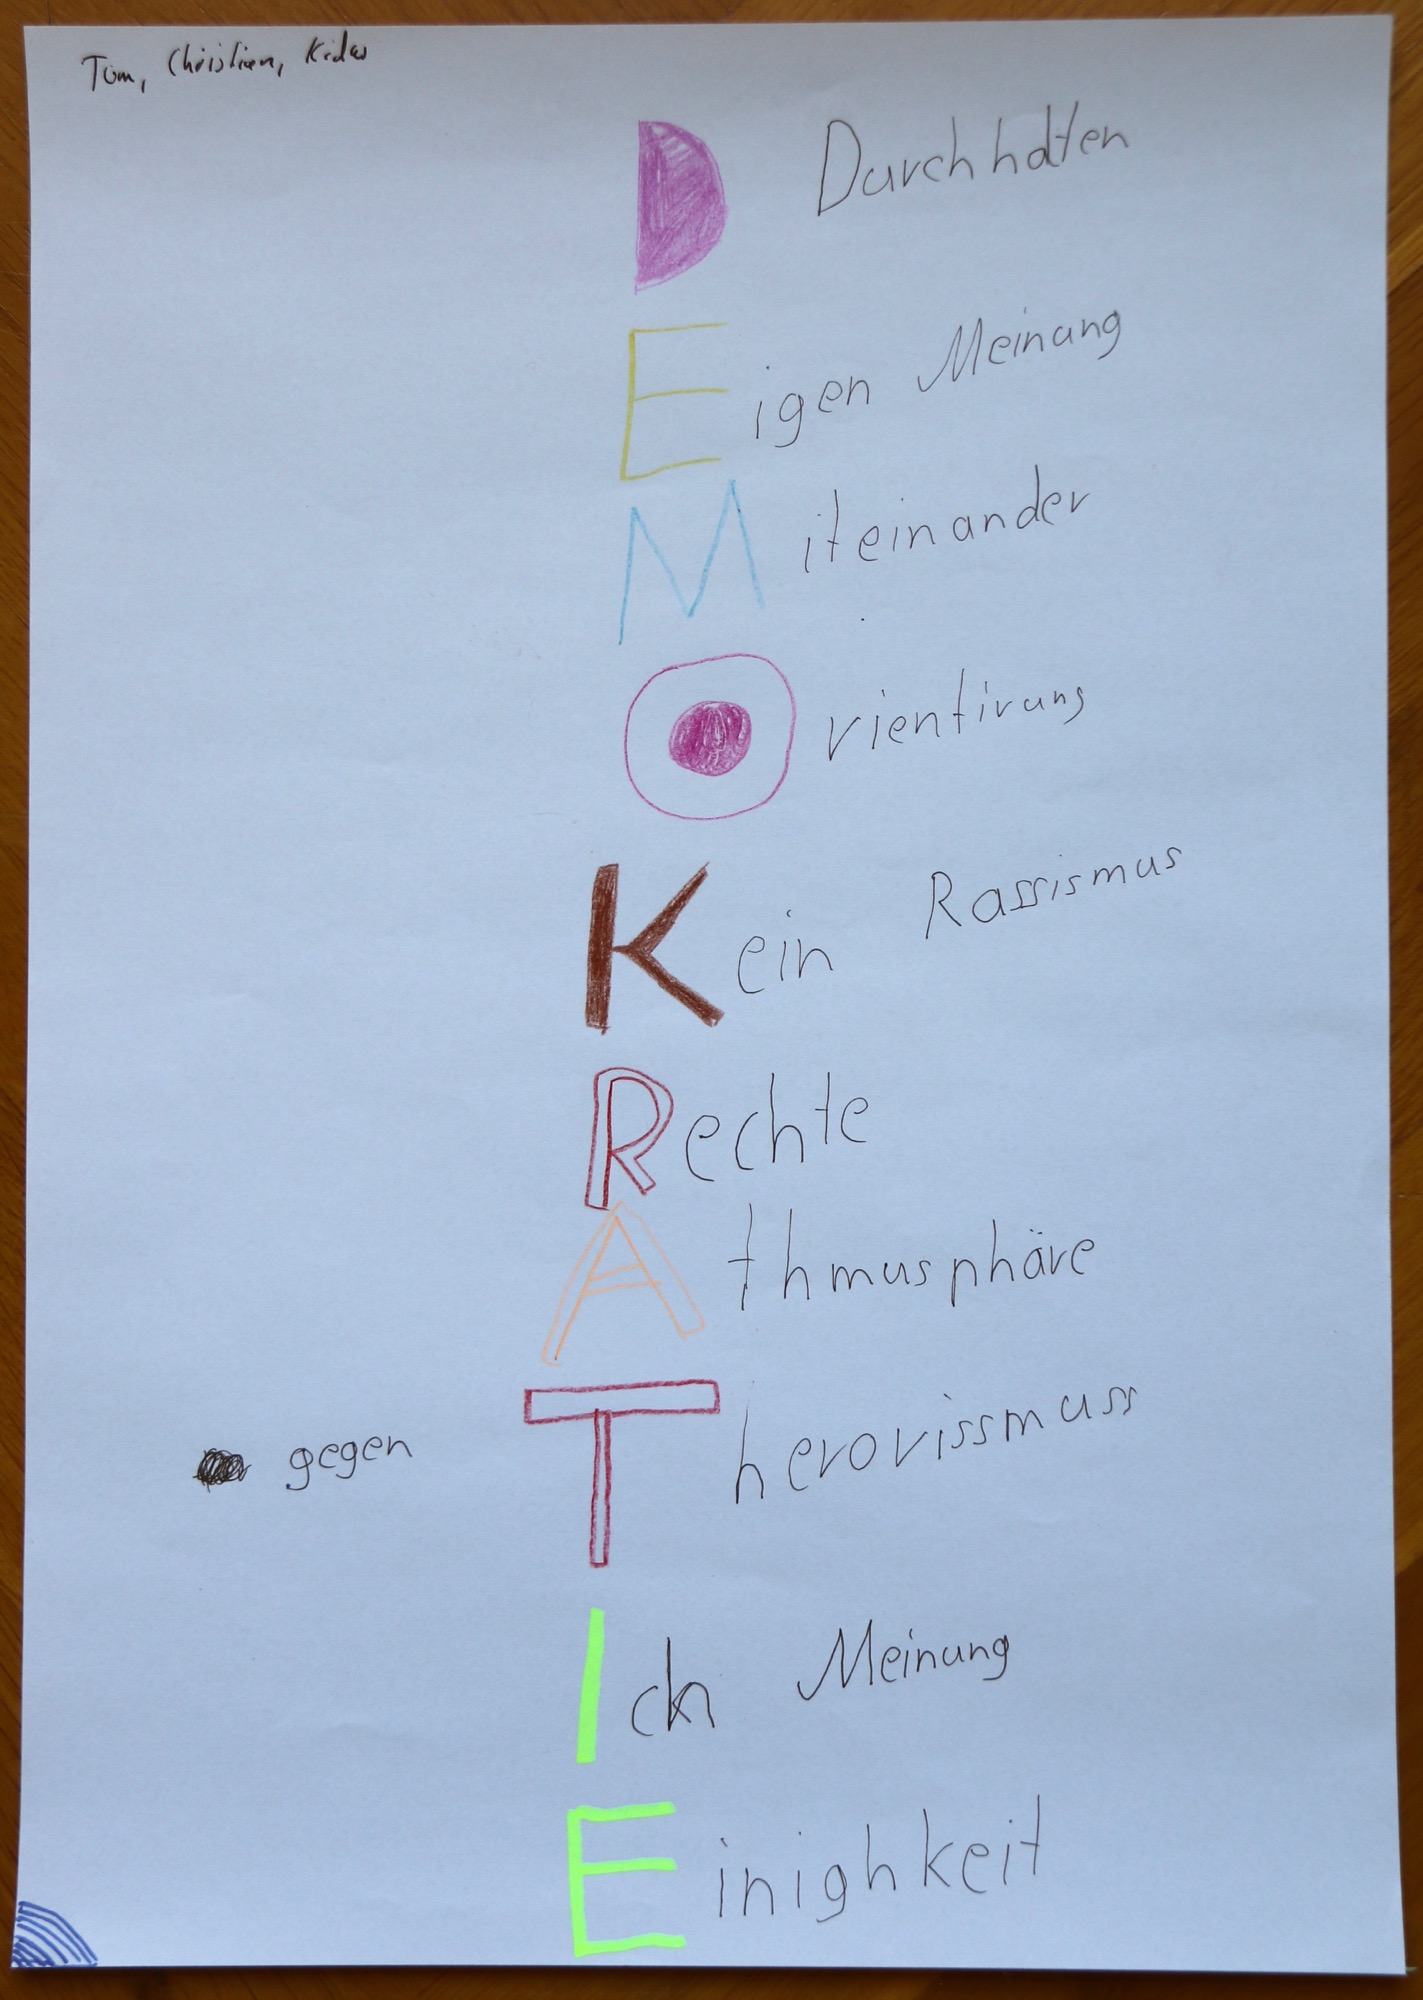 Tom, Christian,
D Durchhalten
Eigen Meinung
Miteinander
Orientirung
Kein Rassismus
Rechte
Athmusphäre
gegen Therorissmuss
Ich Meinung
Einighkeit